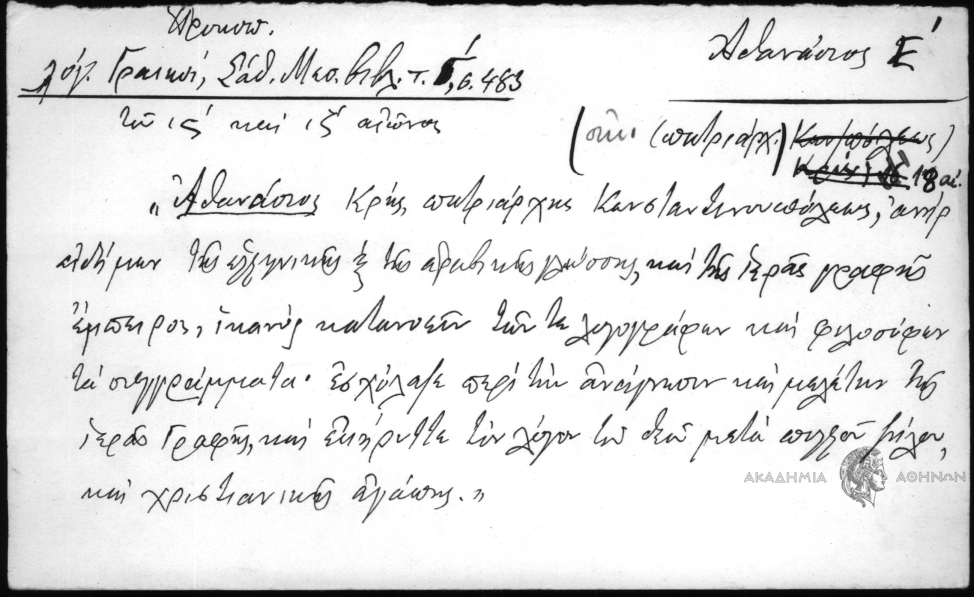 Προκοπ.
λόγ. Γραικοί, Σάθ. Μεσ. βιβλ. τ. Γ΄, σ. 483
Ἀθανάσιος Ε΄
τοῦ ις΄ καὶ ιζ΄ αἰῶνος
(πατριάρχ.) Κων/πόλεως)
18 αἰ.
"Ἀθανάσιος Κρής, πατριάρχης Κωνσταντινουπόλεως, ἀνήρ
εἰδήμων τῆς ἑλληνικῆς ἐξ τῆς ἀραβικῆς γλώσσης, καὶ τῆς ἱερᾶς γραφῆς
ἔμπειρος, ἱκανός κατανοεῖν τῶν τε λογογράφων καὶ φιλοσόφων
τά συγγράμματα· Ἐσχόλαζε περί τὴν ἀνάγνωσιν καὶ μελέτην τῆς
ἱερᾶς Γραφῆς, καὶ ἐκήρυττε τὸν λόγον τοῦ Θεοῦ μετά πολλοῦ ζήλου,
καὶ χριστιανικῆς ἀγάπης."
ΑΚΑΔΗΜΙΑ ΑΘΗΝΩΝ